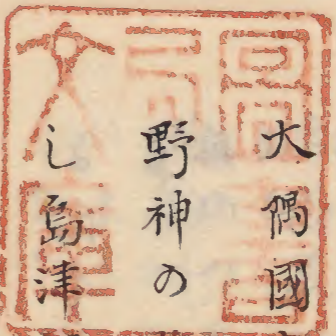 大隅國
野神の
し島津